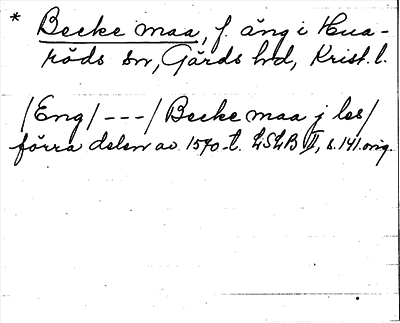 * Becke maa, f. äng i Hua-
röds sn, Gärds hd, Krist. l.
/Eng/ --- / Becke maa j les/
förra delen av 1570-t. LSLB II, s. 141. orig.